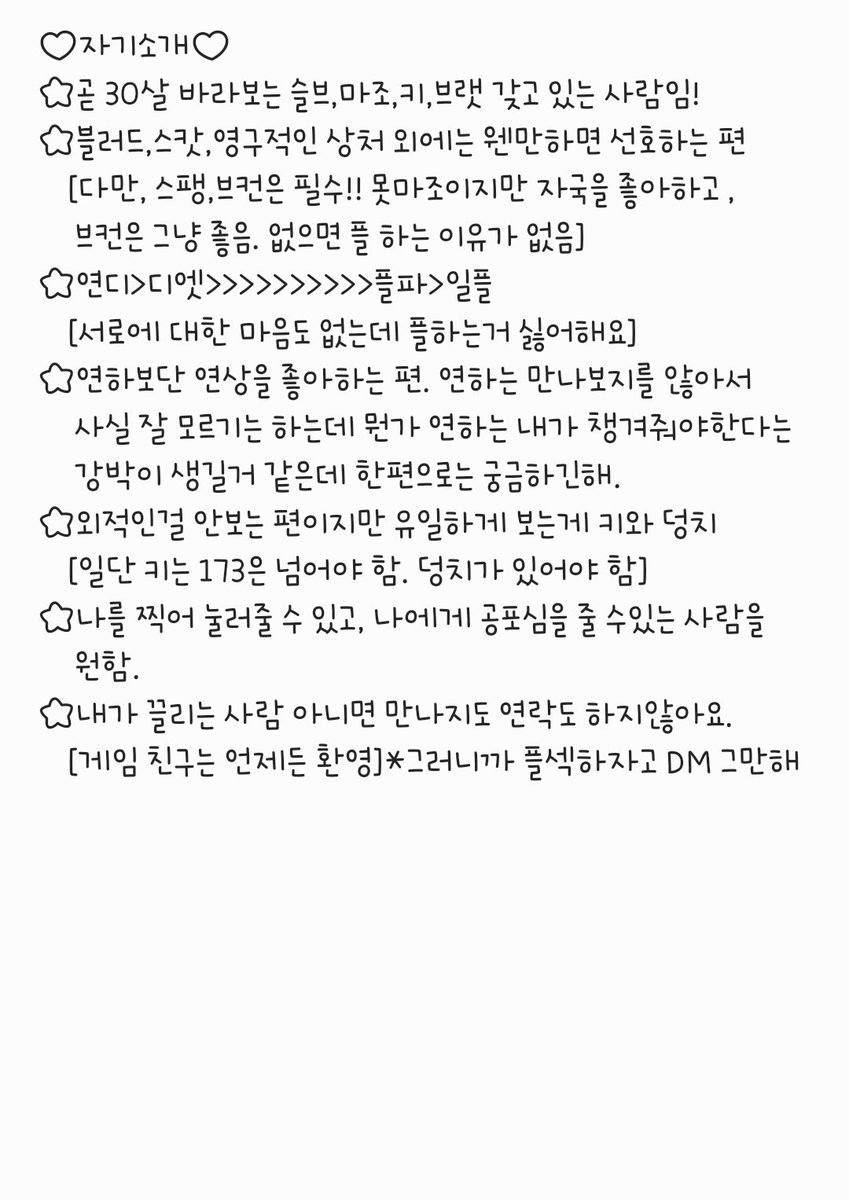 ♡자기소개♡
☆곧 30살 바라보는 슬브,마조,키,브랫 갖고 있는 사람임!
☆블러드,스캇,영구적인 상처 외에는 웬만하면 선호하는 편
[다만, 스팽,브컨은 필수!! 못마조이지만 자국을 좋아하고,
브컨은 그냥 좋음. 없으면 플 하는 이유가 없음]
☆연디>디엣>>>>>>>>>>플파>일플
[서로에 대한 마음도 없는데 플하는거 싫어해요]
☆연하보단 연상을 좋아하는 편. 연하는 만나보지를 않아서
사실 잘 모르기는 하는데 뭔가 연하는 내가 챙겨줘야한다는
강박이 생길거 같은데 한편으로는 궁금하긴해.
☆외적인걸 안보는 편이지만 유일하게 보는게 키와 덩치
[일단 키는 173은 넘어야 함. 덩치가 있어야 함]
☆나를 찍어 눌러줄 수 있고, 나에게 공포심을 줄 수있는 사람을
원함.
☆내가 끌리는 사람 아니면 만나지도 연락도 하지않아요.
[게임 친구는 언제든 환영]*그러니까 플섹하자고 DM 그만해